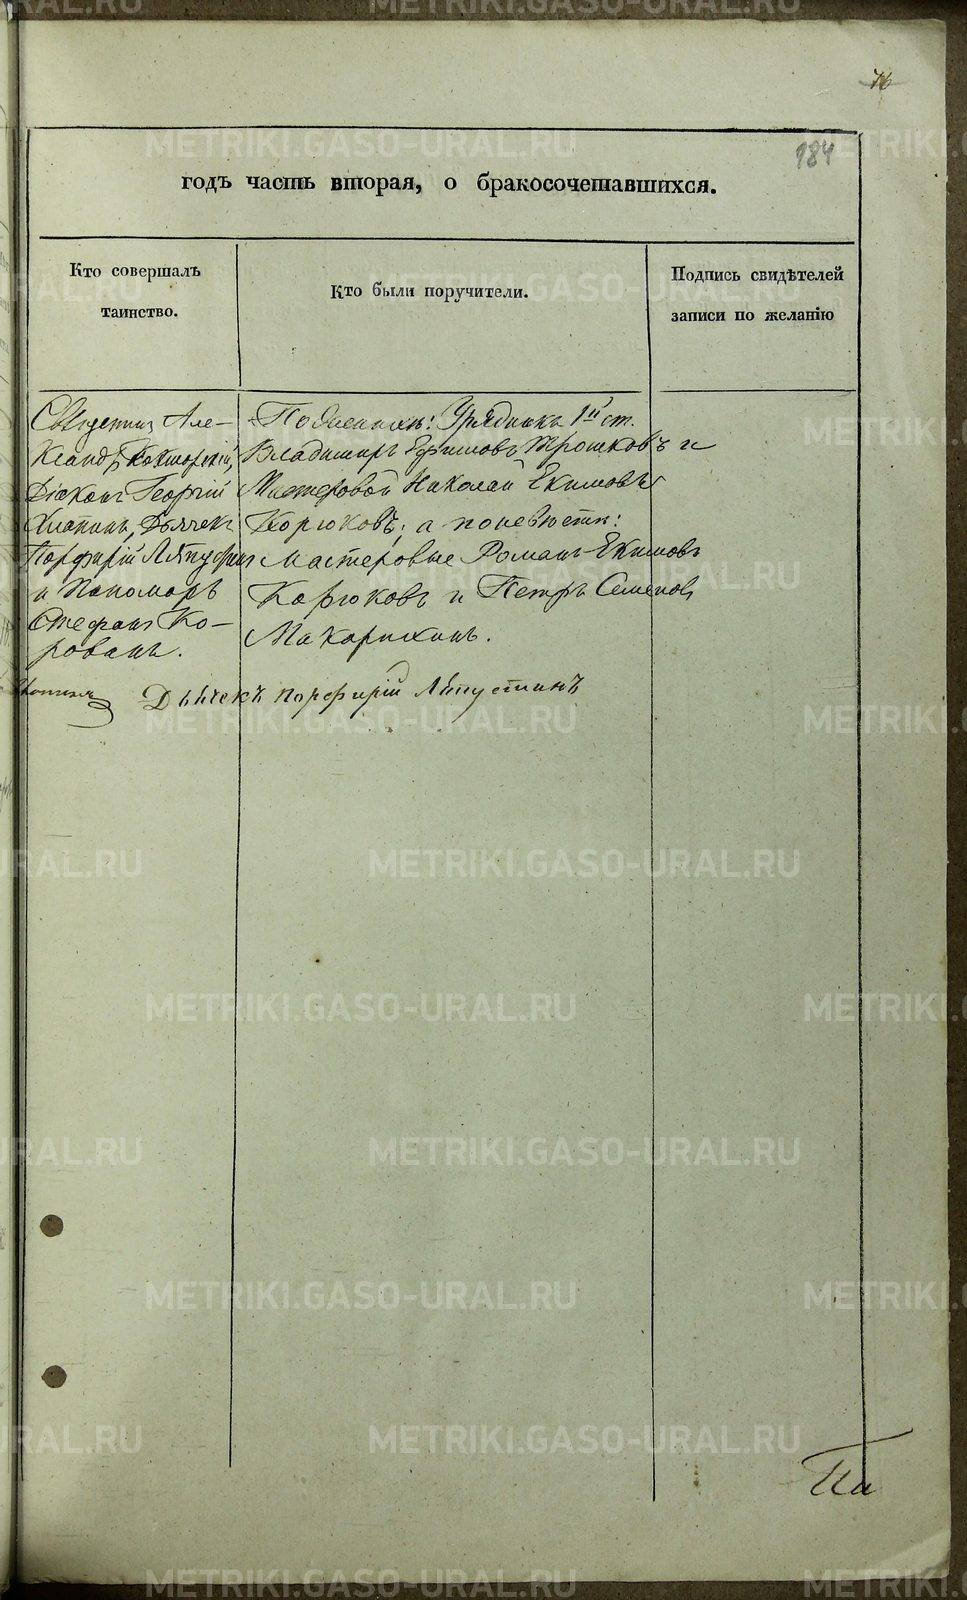 76
184
годъ часть вторая, о бракосочетавшихся.
Кто совершалъ
таинство.
Кто были поручители.
Подпись свидѣтелей
записи по желанію
Священ. Але-
ксандръ
Діаконъ Георгій
Дьячекъ
Порфирій Ляпустин
и Пономарь
Стефанъ Ко-
ровинъ.
По женихѣ: Урядникъ 1й ст.
Владимиръ Ефимовъ Трошковъ и
Мастеровой Николай Екимовъ
Корюковъ; а по невѣстѣ:
Мастеровые Романъ Екимовъ
Карюковъ и Петръ Семеновъ
Макарихинъ.
Дьячекъ Порфирій Ляпустинъ
METRIKI.GASO-URAL.RU